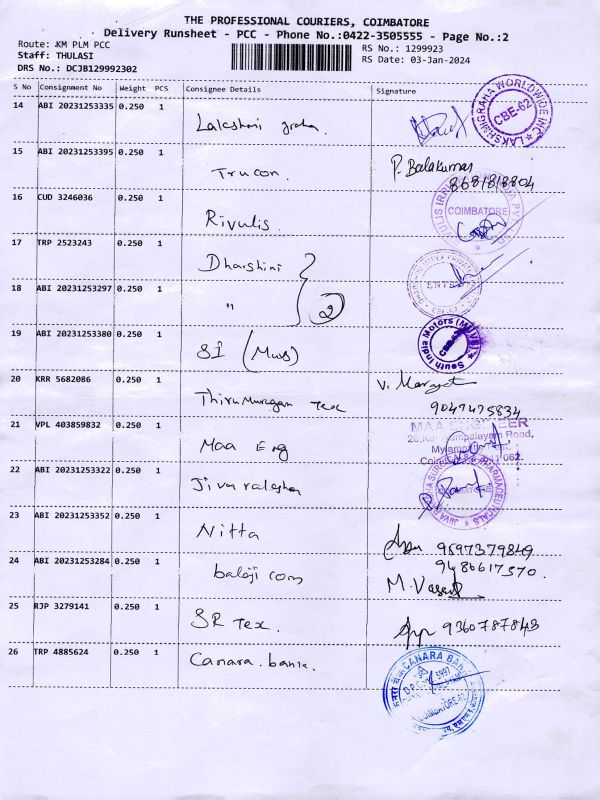 THE PROFESSIONAL COURIERS, COIMBATORE
Delivery Runsheet - PCC - Phone No.:0422-3505555 - Page No.:2
Route: KM PLM PCC
Staff: THULASI
DRS No.: DCJB129992302
RS No.: 1299923
RS Date: 03-Jan-2024
S No Consignment No Weight PCS Consignee Details Signature
14 ABI 20231253335 0.250 1 Lakshmi graha
LAKSHMIGRAHA WORLDWIDE INC CBE-62
15 ABI 20231253395 0.250 1 Trucon. P. Balakumar
8681818804
16 CUD 3246036 0.250 1 Rivulis.
COIMBATORE
17 TRP 2523243 0.250 1 Dharshini
18 ABI 20231253297 0.250 1 " 2
19 ABI 20231253380 0.250 1 SI (Muvs)
South India Motors (MUVS)
20 KRR 5682086 0.250 1 Thirumurugan Tex
9047475834
21 VPL 403859832 0.250 1 Maa Eng
MAA ENGINEER
Road,
22 ABI 20231253322 0.250 1 Jivaralesha
23 ABI 20231253352 0.250 1 Nitta
9597379849
24 ABI 20231253284 0.250 1 balaji com
9486617570.
25 RJP 3279141 0.250 1 SR Tex. 9360787848
26 TRP 4885624 0.250 1 Canara. bank.
CANARA BANK
COIMBATORE